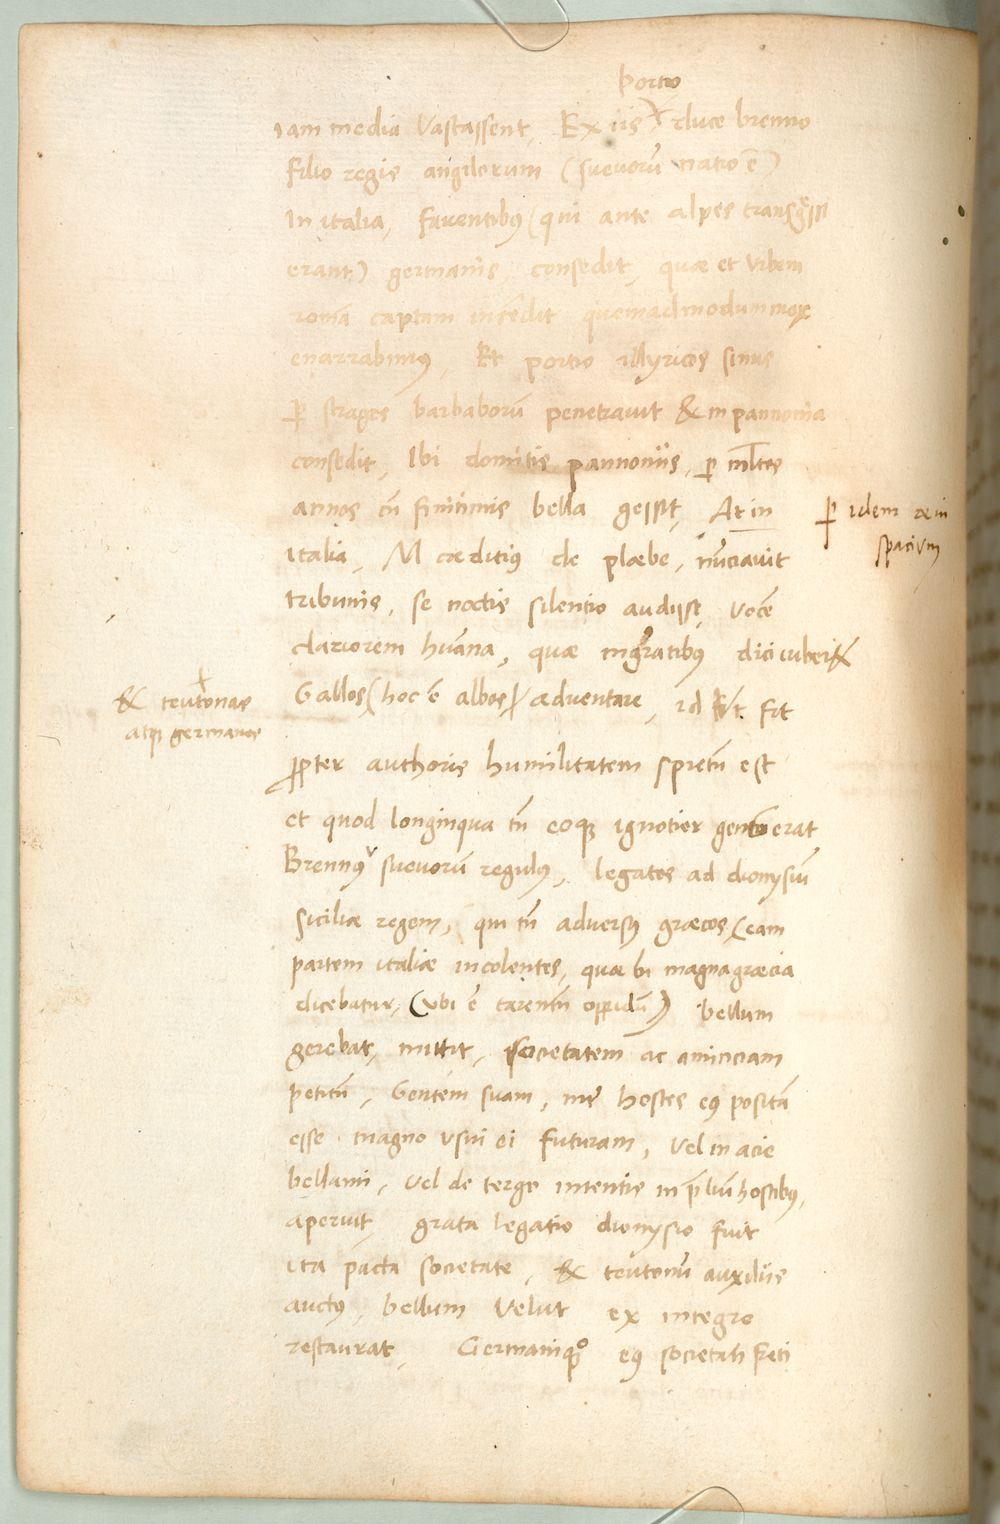 portio
iam media vastassent, Ex iis duce brenno
filio regis angilorum (suevorū natio ē)
In italia, faventibus (qui ante alpes transgressi
erant) germanis consedit, quae et vrbem
romā captam incēdit quemadmodum mox
enarrabimus, Et portio illyricos sinus
per strages barbaborū penetravit & in pannonia
consedit, Ibi domitis pannoniis, per mltos
annos cū finitimis bella gessit, At in
per idem aevi
spacium
italia, M caeditius de plaebe, nūciavit
tribunis, se noctis silentio audiisse, vocē
clariorem huāna, quae magratibus dici iuberet
& teutonas
atque germanos
Gallos (hoc ē albos) adventare, id ut fit
propter authoris humilitatem spretū est
et quod longinqua tū eoque ignotior gens erat
Brennus suevorū regulus, legatos ad dionysiū
siciliae regem, qui tū adversus graecos (eam
partem italiae incolentes, quae bi magna graecia
dicebatur, (vbi ē tarentū oppidū) bellum
gerebat, mittit, societatem ac amiciciam
petitū, Gentem suam, inter hostes eius positā
esse magno usui ei futuram, vel in acie
bellanti, vel de tergo intentis in prēliū hostibus,
aperuit, grata legatio dionysio fuit
ita pacta societate, & teutonū auxiliis
auctus, bellum velut ex integro
restaurat, Germanique eius societati freti